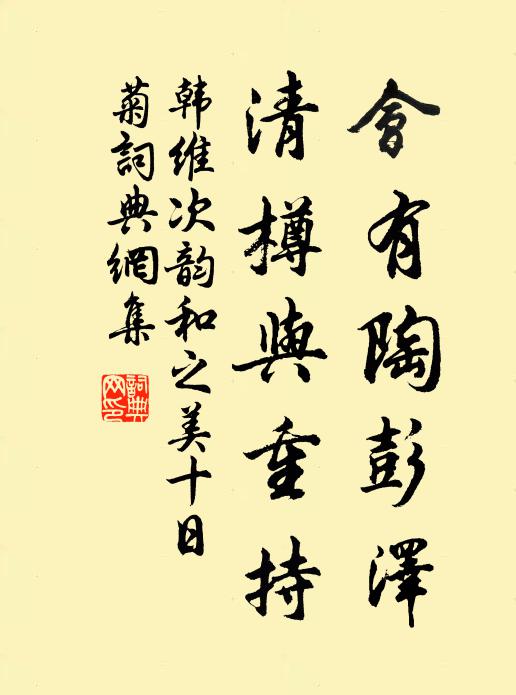 會有陶彭澤
清樽與重持
韩维次韵和之美十日
菊詞典網集
詞典网印